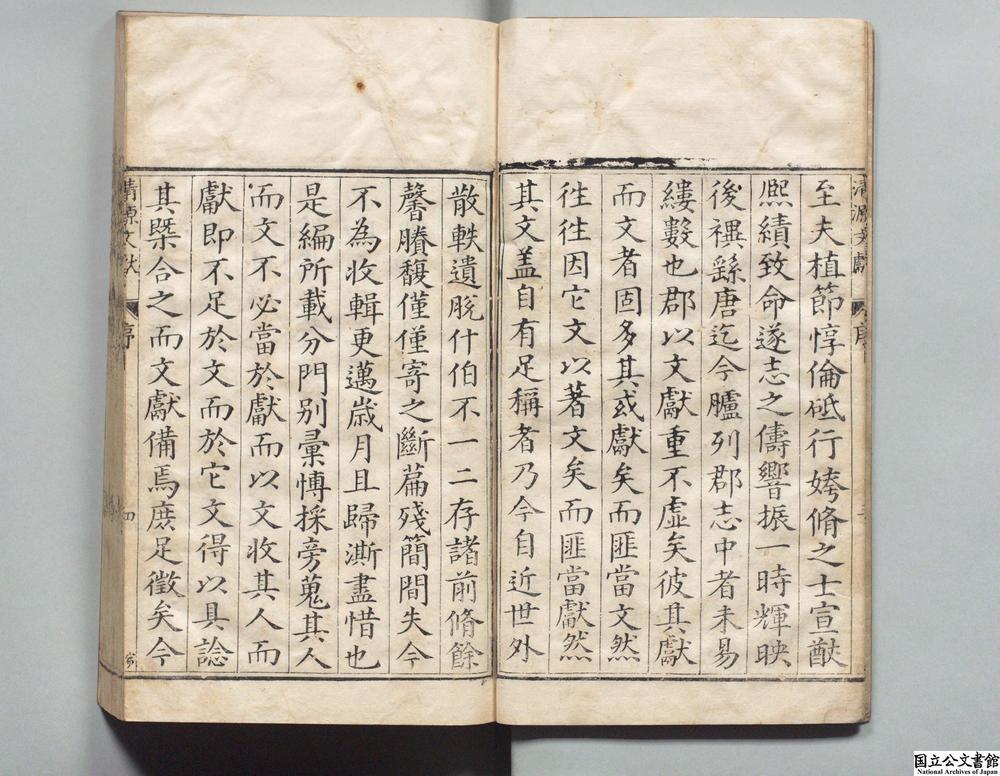 至夫植節惇倫砥行姱脩之士宣猷
熈績致命遂志之儔響振一時輝映
後禩繇唐迄今臚列郡志中者未易
縷數也郡以文獻重不虛矣彼其獻
而文者固多其或獻矣而匪當文然
徃徃因它文以著文矣而匪當獻然
其文盖自有足稱者乃今自近世外
散軼遺脫什伯不一二存諸前脩餘
馨賸馥僅僅寄之斷篇殘簡間失今
不為收輯更邁歳月且歸澌盡惜也
是編所載分門別彙愽採旁蒐其人
而文不必當於獻而以文收其人而
獻即不足於文而於它文得以具諗
其槩合之而文獻備焉庶足徵矣今
清源文獻
序
四
国立公文書館
National Archives of Japan